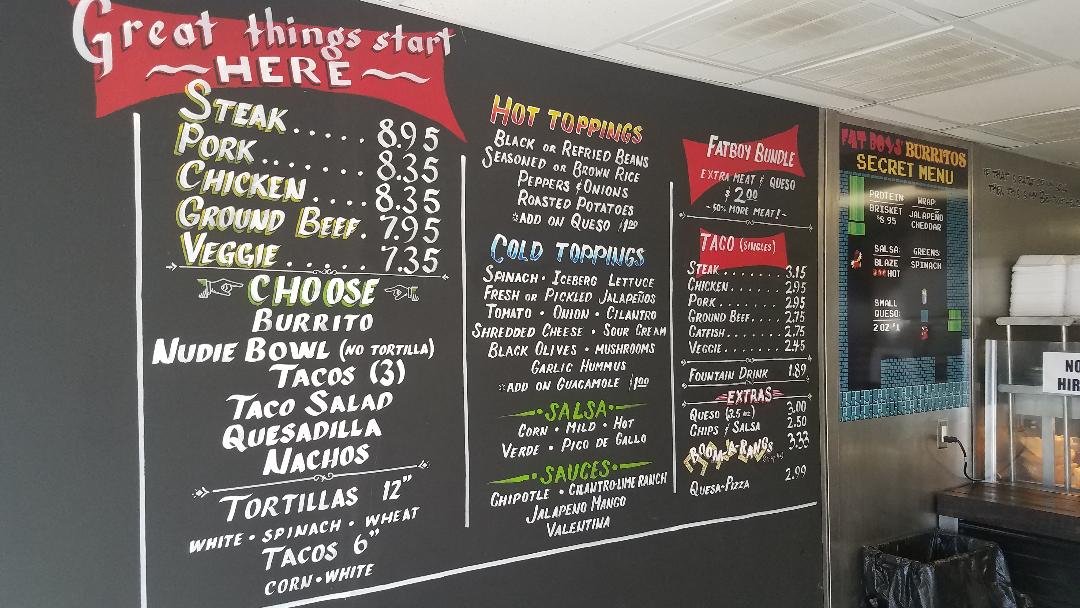 Great things start
HERE
STEAK..... 8.95
PORK........ 8.35
CHICKEN.... 8.35
GROUND BEEF. 7.95
VEGGIE...... 7.35
CHOOSE
BURRITO
NUDIE BOWL (NO TORTILLA)
TACOS (3)
TACO SALAD
QUESADILLA
NACHOS
TORTILLAS 12"
WHITE • SPINACH • WHEAT
TACOS 6"
CORN • WHITE
HOT TOPPINGS
BLACK OR REFRIED BEANS
SEASONED OR BROWN RICE
PEPPERS & ONIONS
ROASTED POTATOES
*ADD ON QUESO $1.00
COLD TOPPINGS
SPINACH • ICEBERG LETTUCE
FRESH OR PICKLED JALAPEÑOS
TOMATO • ONION • CILANTRO
SHREDDED CHEESE • SOUR CREAM
BLACK OLIVES • MUSHROOMS
GARLIC HUMMUS
*ADD ON GUACAMOLE $1.00
SALSA
CORN • MILD • HOT
VERDE • PICO DE GALLO
SAUCES
CHIPOTLE • CILANTRO-LIME RANCH
JALAPENO MANGO
VALENTINA
FATBOY BUNDLE
EXTRA MEAT & QUESO
$2.00
~50% MORE MEAT!~
TACO (SINGLES)
STEAK......... 3.15
CHICKEN....... 2.95
PORK.......... 2.95
GROUND BEEF.... 2.75
CATFISH........ 2.75
VEGGIE........ 2.45
FOUNTAIN DRINK 1.89
EXTRAS
QUESO (3.5 oz) 3.00
CHIPS & SALSA 2.50
BOOM-A-RANGS 3.33
QUESA-PIZZA 2.99
FAT BOYS' BURRITOS
SECRET MENU
PROTEIN
BRISKET
$8.95
WRAP:
JALAPEÑO
CHEDDAR
SALSA:
BLAZE
HOT
GREENS
SPINACH
SMALL
QUESO:
2 OZ $1
NO
HIR